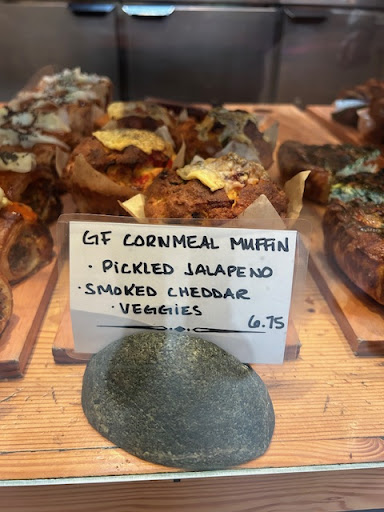 GF CORNMEAL MUFFIN
· PICKLED JALAPENO
· SMOKED CHEDDAR
· VEGGIES
6.75